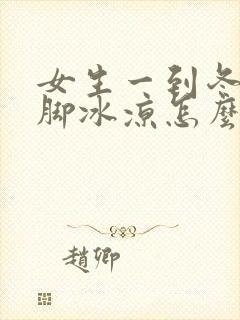 女生一到冬
脚冰凉怎麽
趙卿